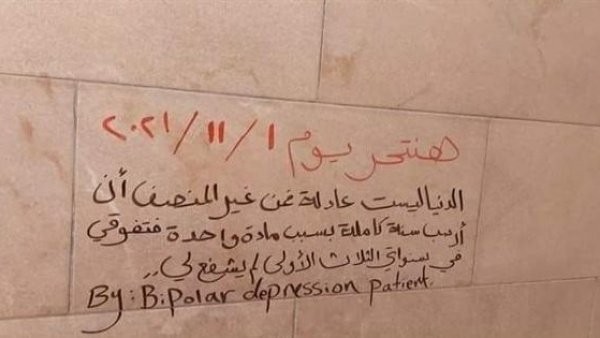 هنتحر يوم ١ / ١١ / ٢٠٢١
الدنيا ليست عادلة فمن غير المنصف أن
أرسب سنة كاملة بسبب مادة واحدة فتفوقي
في سنواتي الثلاث الأولى لم يشفع لي..
By: Bipolar depression patient.